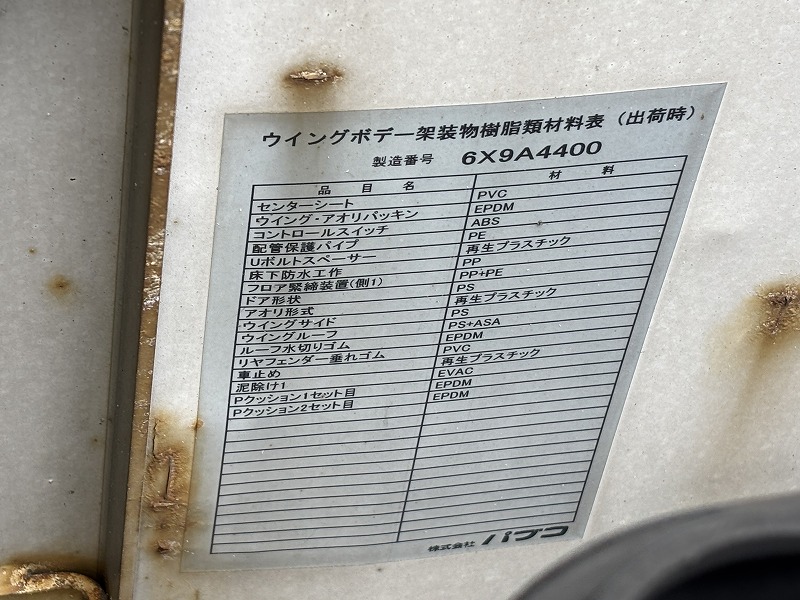 ウイングボデー架装物樹脂類材料表（出荷時）
製造番号 6X9A4400
品目名 材料
センターシート PVC
ウイング・アオリパッキン EPDM
コントロールスイッチ ABS
配管保護パイプ PE
Uボルトスペーサー 再生プラスチック
床下防水工作 PP
フロア緊締装置(側1) PP+PE
ドア形状 PS
アオリ形式 再生プラスチック
ウイングサイド PS
ウイングルーフ PS+ASA
ルーフ水切りゴム EPDM
リヤフェンダー垂れゴム PVC
車止め 再生プラスチック
泥除け1 EVAC
Pクッション1セット目 EPDM
Pクッション2セット目 EPDM
株式会社 パブコ